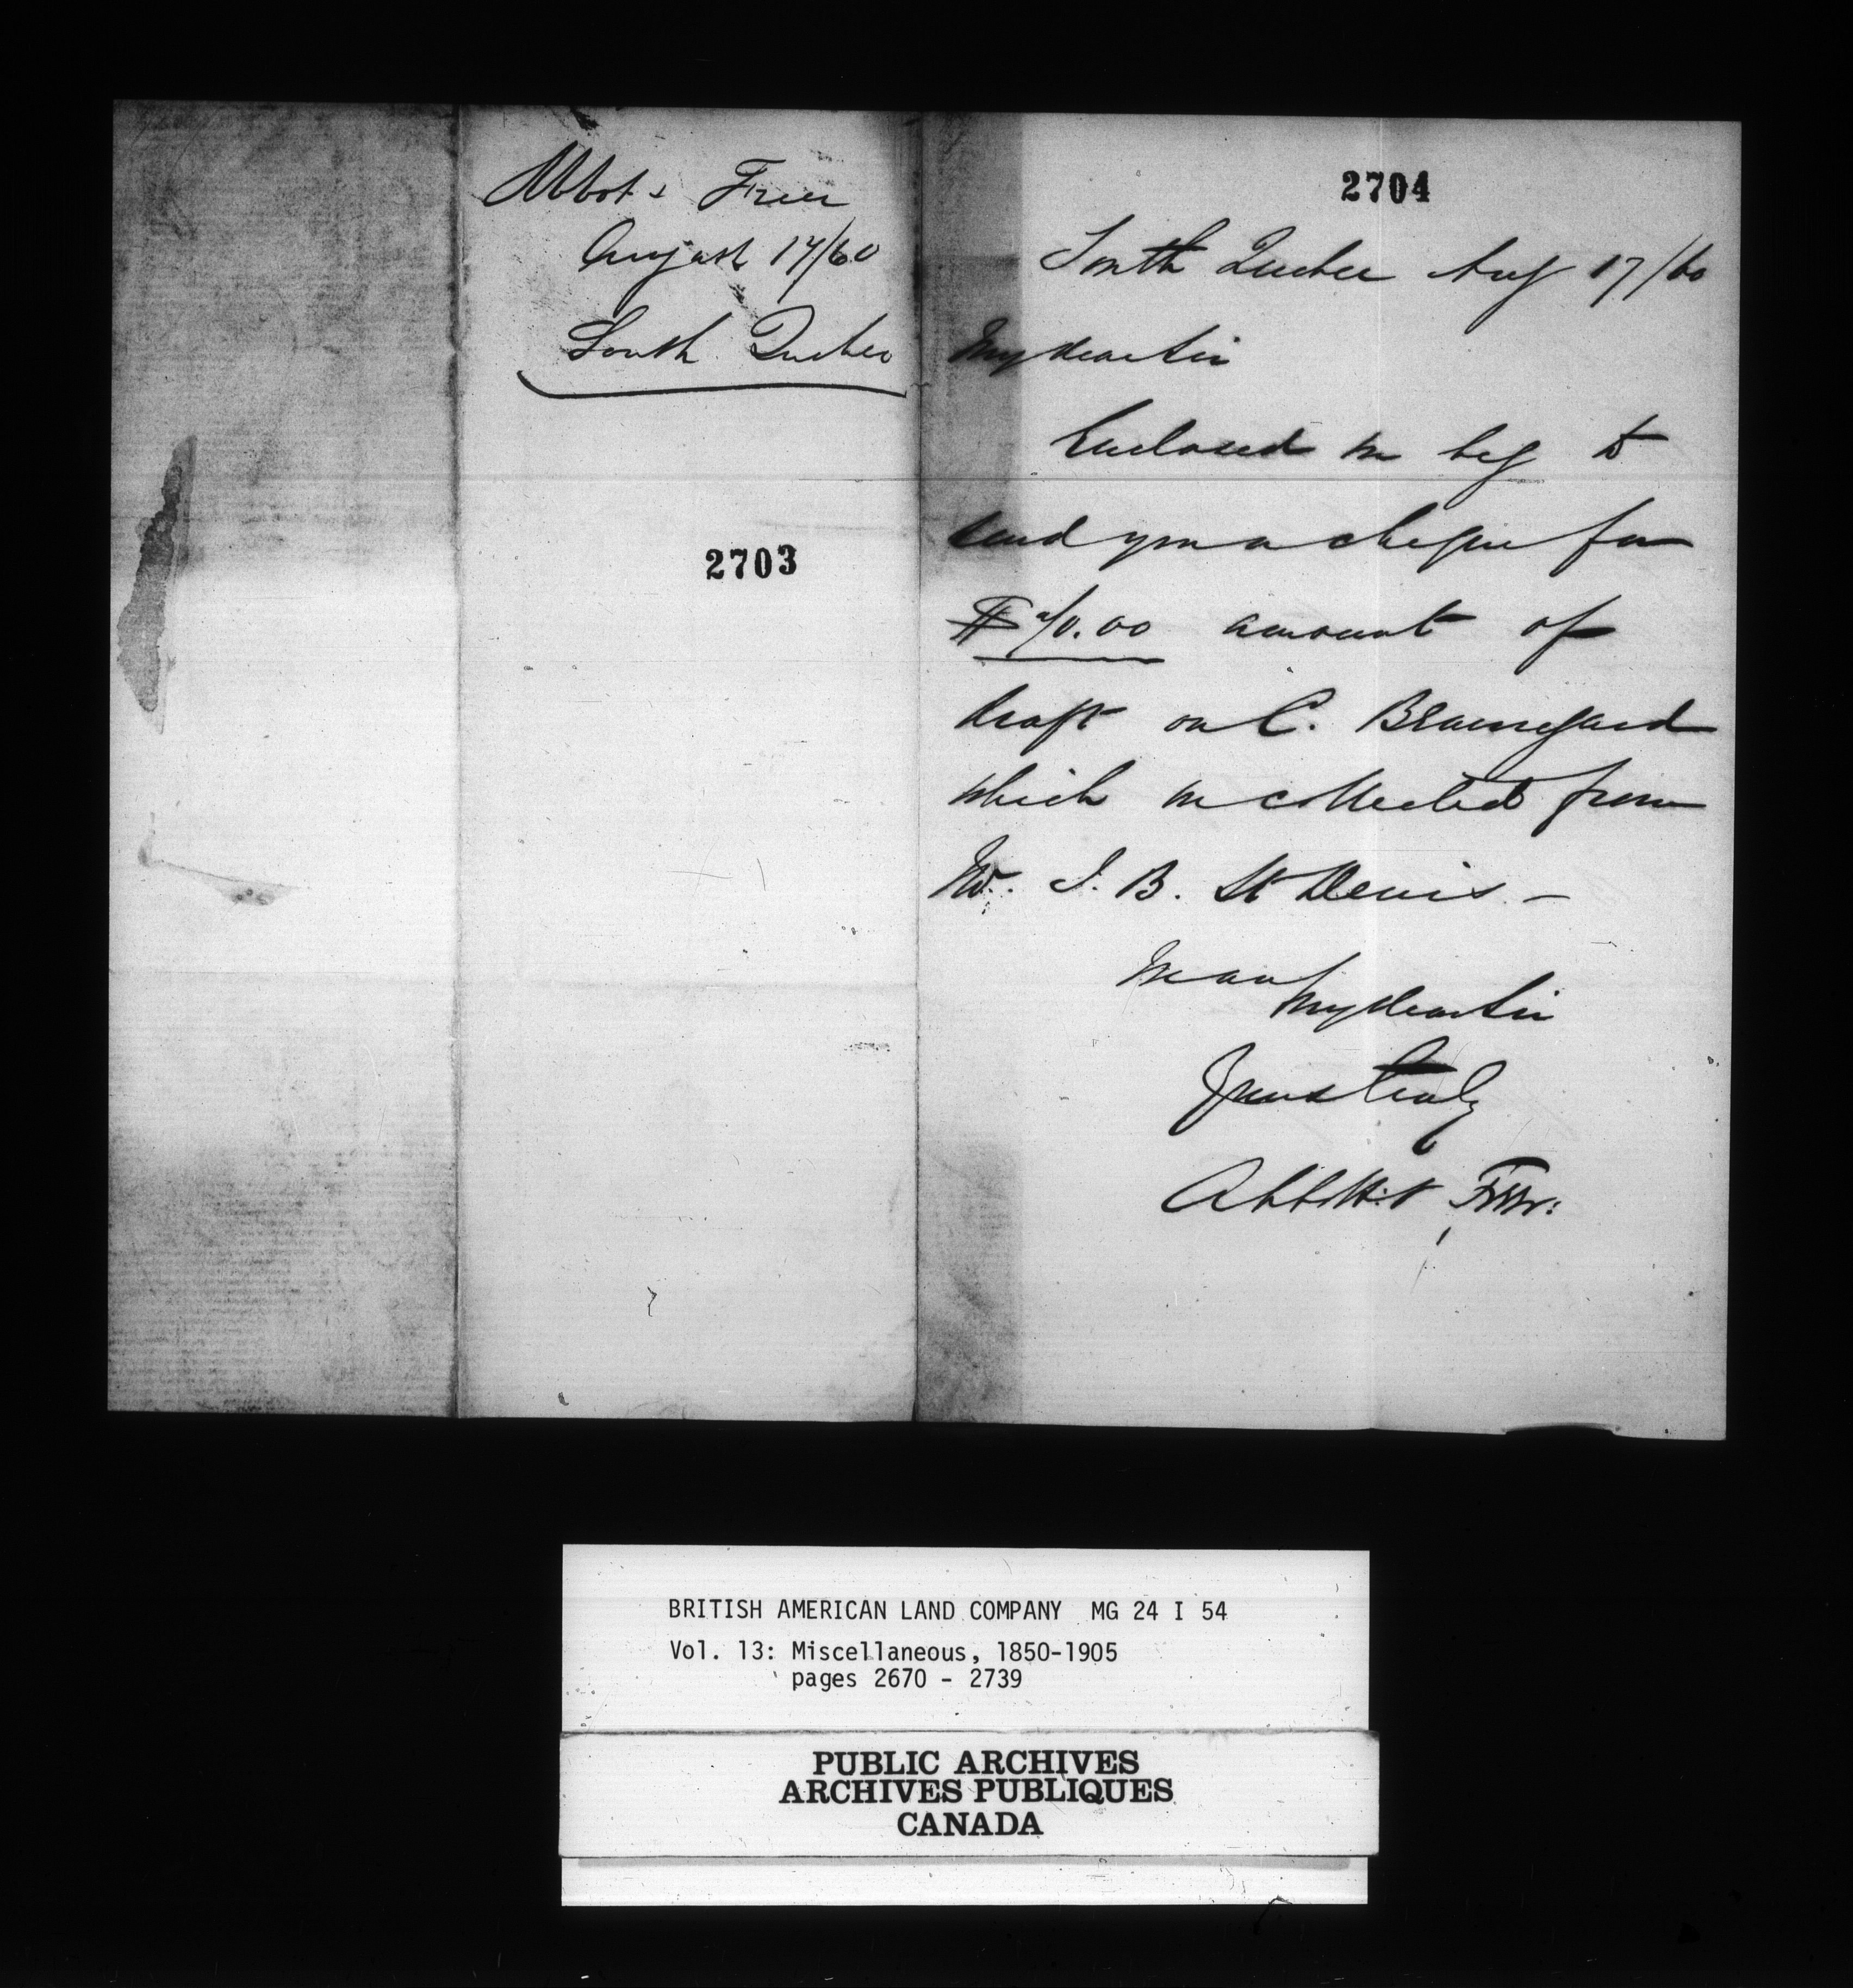 Abbot & Freer
August 17/60
South Quebec
2703
2704
South Quebec Aug 17/60
My dear Sir
Enclosed we beg to
send you a cheque for
amount of
draft on C. Beauregard
which we collected from
Mr. J. B. St Denis. —
We are
My dear Sir
Yours truly
Abbott & Freer:
BRITISH AMERICAN LAND COMPANY MG 24 I 54
Vol. 13: Miscellaneous, 1850-1905
pages 2670 - 2739
PUBLIC ARCHIVES
ARCHIVES PUBLIQUES
CANADA